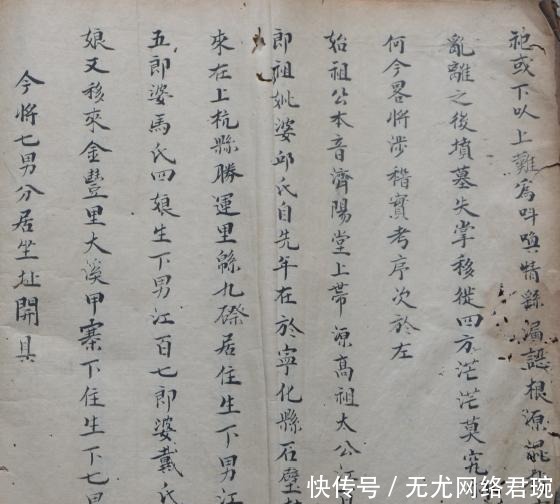 祀或下以上難為呌喚情漏認根源
亂離之後墳墓失掌移徙四方茫茫莫究
何今畧將涉稽實考序次於左
始祖公本音濟陽堂上帶源高祖太公江
郎祖妣婆邱氏自先年在於寧化縣石壁
來在上杭縣勝運里九磜居住生下男江
五郎婆馬氏四娘生下男江百七郎婆戴氏
娘又移來金豐里大溪甲寨下住生下七男
今將七男分居坐址開具
快传号/无尤网络君琬